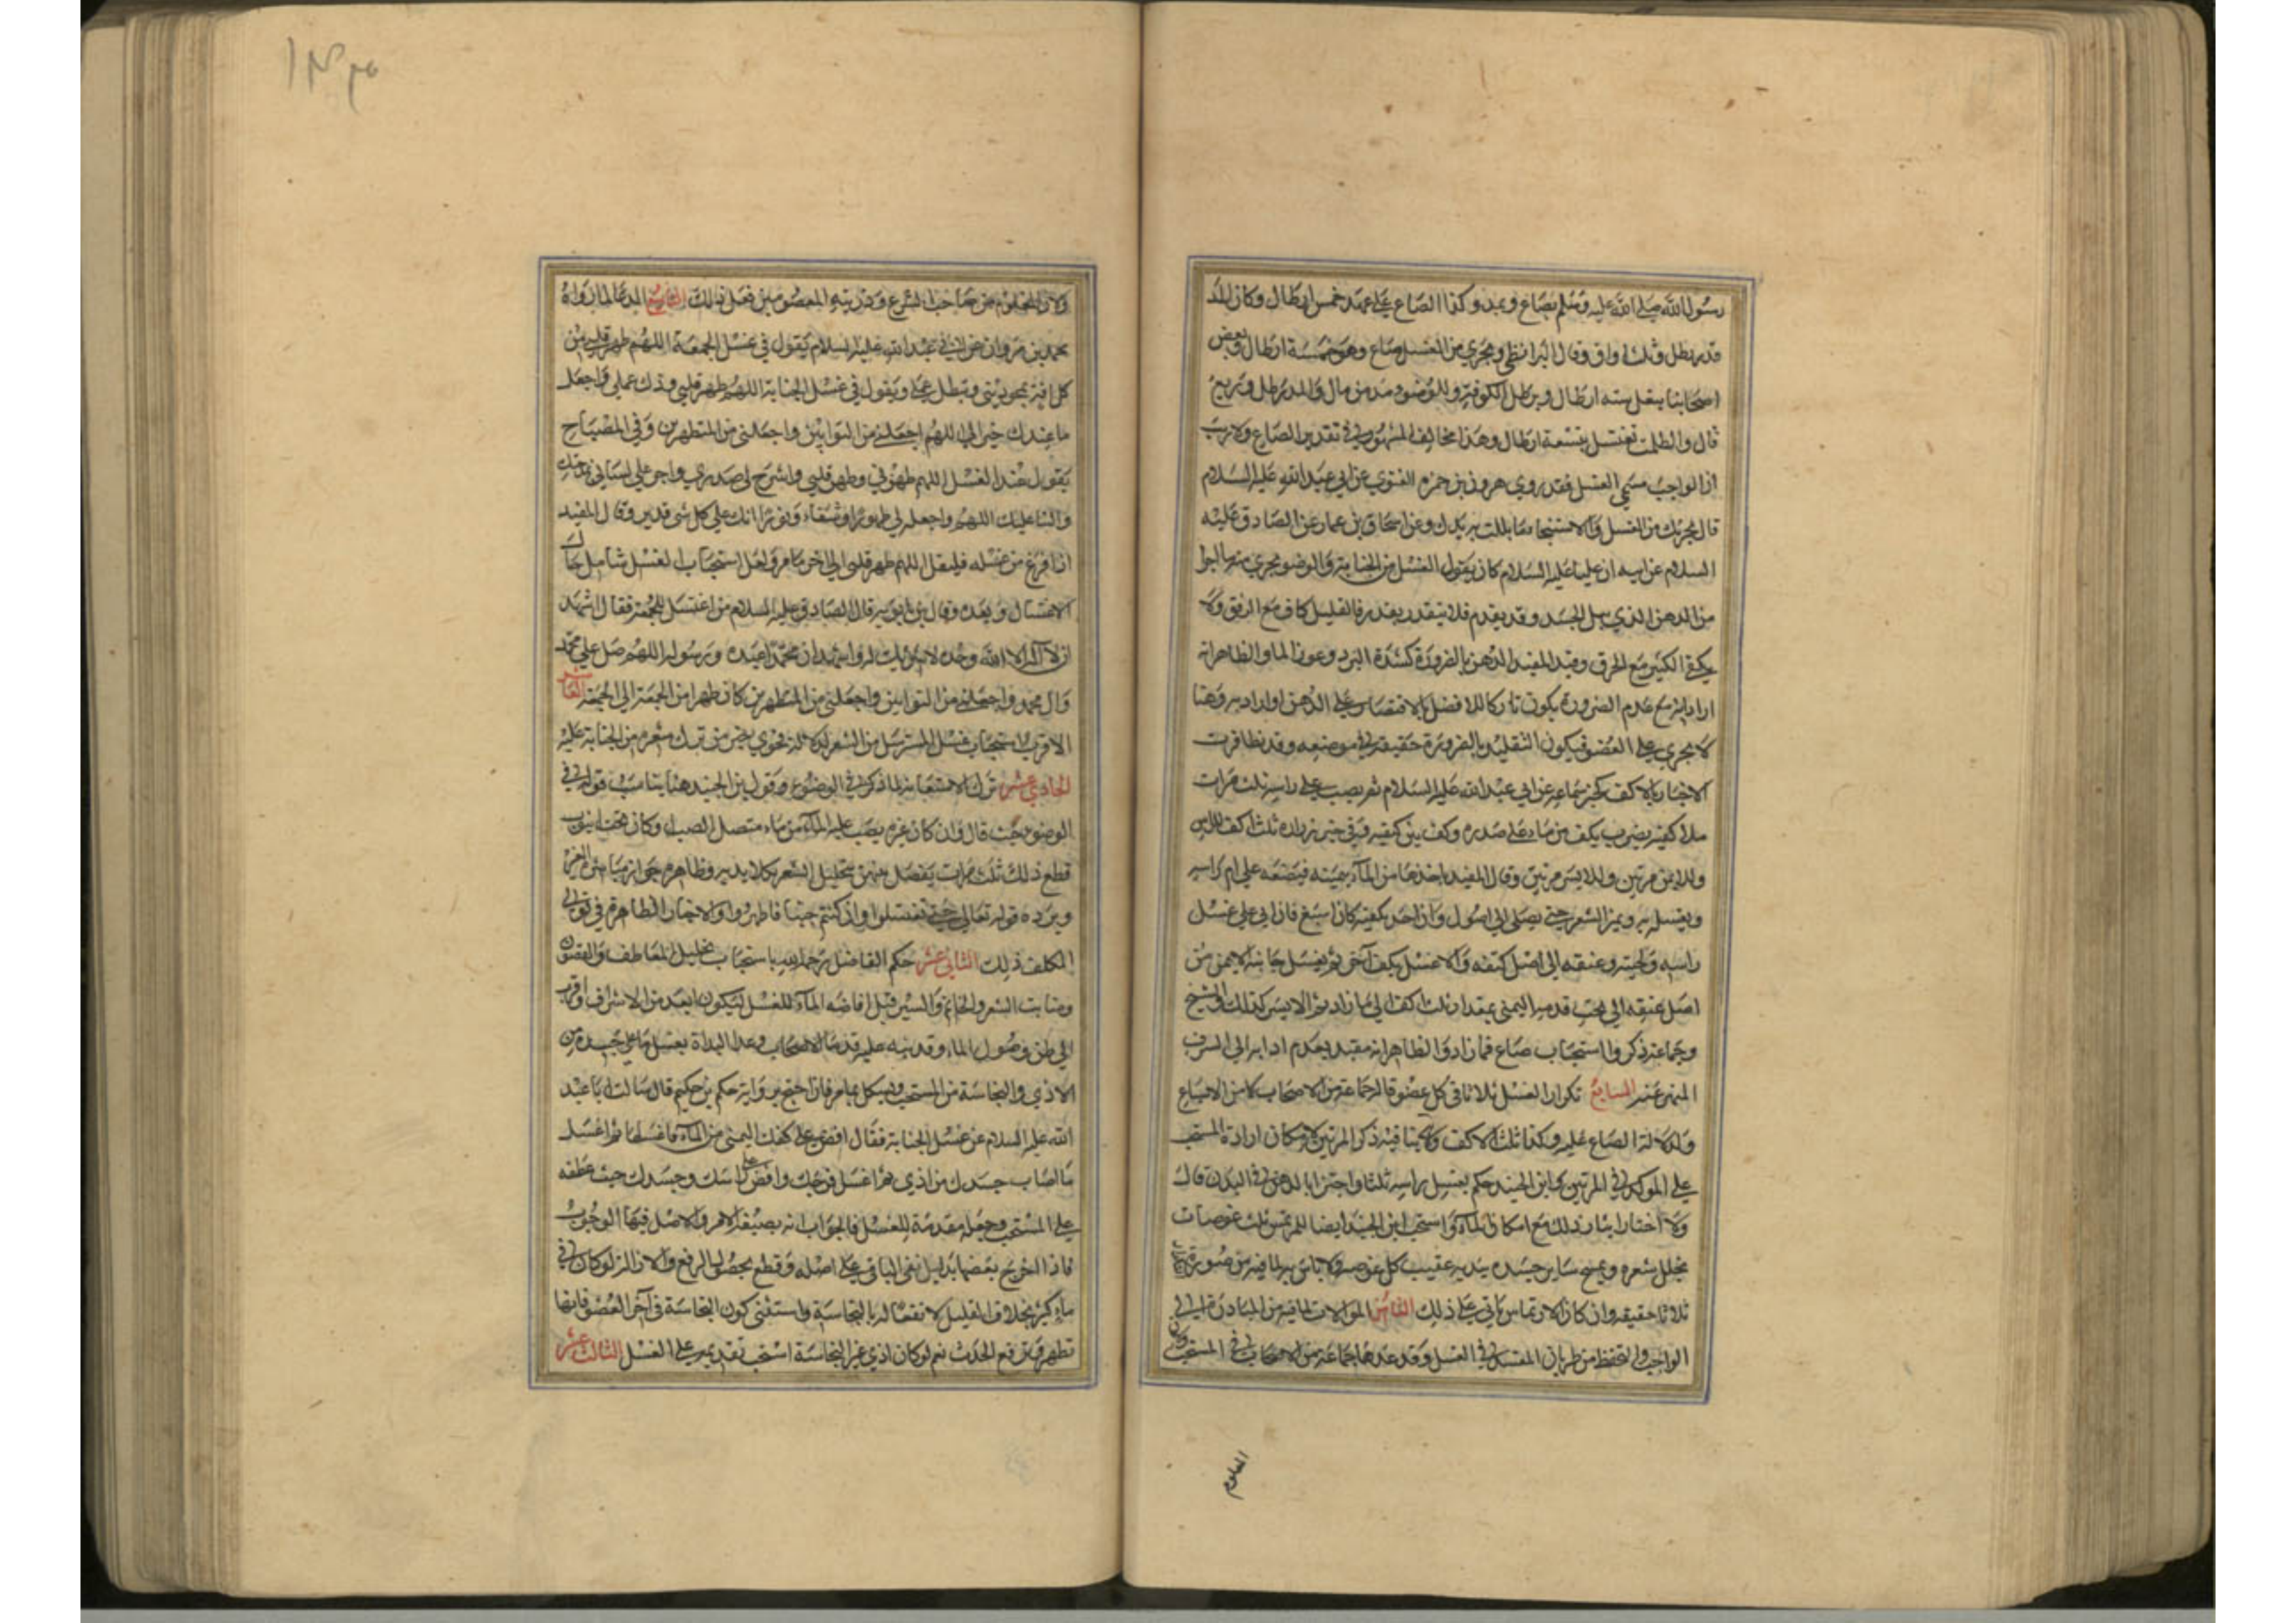 رسول الله صلى الله عليه وسلم بصاع وبمد وكذا الصاع على عهده خمس ارطال وكان المد
قدر رطل وثلث اواق وقال البزنطي ويجزي من الغسل صاع وهو خمسة ارطال وبعض
اصحابنا ينقل ستة ارطال وبرطل الكوفة وللوضوء مد من مال والمد رطل وربع
قال والطامث تغتسل بتسعة ارطال وهذا مخالف للمشهور في تقدير الصاع ولا ريب
ان الواجب مسمى الغسل فقد روى هرون بن حمزه الغنوي عن ابي عبد الله عليه السلام
قال يجزيك من الغسل والاستنجا ما بللت به يدك وعن اسحاق بن عمار عن الصادق عليه
السلام عن ابيه ان عليا عليه السلام كان يقول الغسل من الجنابة والوضو يجزي منه ما اجزا
من الدهن الذي يبل الجسد وقد يقدم فلا يتقدر بقدر فالقليل كاف مع الرفق ولا
يكفي الكثير مع الخرق وقيد المفيد الدهن بالضرورة كشدة البرد وعوز الما والظاهر انه
اراد به مع عدم الضرورة يكون تاركا للافضل بالاقتصار على الدهن او اراد به دهنا
لا يجري على العضو فيكون التقليد بالضرورة حقيقة في موضعه وقد تظافرت
الاخبار بالاكف كخبر سماعه عن ابي عبد الله عليه السلام ثم يصب على راسه ثلث مرات
ملا كفيه يضرب بكف من ما على صدره وكف بين كتفيه وفي خبر زراره ثلث اكف للراس
وللايمن مرتين وللايسر مرتين وقال المفيد ياخذها من المآء بيمينه فيضعه على ام راسه
ويغسله به ويميز الشعر حتى يصل الى اصوله وان اخذ بكفيه كان اسبغ فان اتى على غسل
راسه ولحيته وعنقه الى اصل كتفه والا غسل بكف آخر ثم يغسل جانبه الايمن من
اصل عنقه الى تحت قدمه اليمنى بمقدار ثلث اكف الى ما زاد ثم الايسر كذلك والشيخ
وجماعة ذكروا استحباب صاع فما زاد والظاهر انه مقيد بعدم ادايه الى السرف
المنهي عنه السابع تكرار الغسل ثلاثا في كل عضو قاله جماعة من الاصحاب لما من الاسباغ
ولدلالة الصاع عليه وكذا ثلث الاكف ولا ينافيه ذكر المرتين لامكان ارادة المستحب
على الموكد في المرتين وابن الجنيد حكم بغسل راسه ثلثا واجتزا بالدهن في البدن قال
ولا اختار ايثار ذلك مع امكان الماء واستحب ابن الجنيد ايضا للمرتمس ثلث غوصات
يخلل شعره ويمسح ساير جسده بيديه عقيب كل غوصه ولا باس به لما فيه من صورة
ثلاثا حقيقه وان كان الارتماس ياتي على ذلك الثامن الموالات لما فيه من المبادرة الى
الواجب والتحفظ من طريان المفسد في الغسل وقد عدها جماعة من الاصحاب في المستحب ولان
المعلوم
ولان المعلوم من صاحب الشرع وذريته المعصومين فعل ذلك التاسع الدعا لما رواه
محمد بن مروان عن ابي عبد الله عليه السلام يقول في غسل الجمعة اللهم طهر قلبي من
كل افة تمحق ديني وتبطل عملي ويقول في غسل الجنابة اللهم طهر قلبي وزك عملي واجعل
ما عندك خيرا لي اللهم اجعلني من التوابين واجعلني من المتطهرين وفي المصباح
يقول عند الغسل اللهم طهرني وطهر قلبي واشرح لي صدري واجر على لساني مدحتك
والثنا عليك اللهم واجعله لي طهورا وشفاء ونورا انك على كل شي قدير وقال المفيد
اذا فرغ من غسله فليقل اللهم طهر قلبي الى اخر ما مر ولعل استحباب الغسل شامل حال
الاغتسال وبعده وقال بن بابويه قال الصادق عليه السلام من اغتسل للجمعة فقال اشهد
ان لا اله الا الله وحده لا شريك له واشهد ان محمدا عبده ورسوله اللهم صل على محمد
وال محمد واجعلني من التوابين واجعلني من المتطهرين كان طهرا من الجمعة الى الجمعة العاشر
الاقرب استحباب غسل المسترسل من الشعر لدلالة فحوى بعض من ترك شعرة من الجنابة عليه
الحادي عشر ترك الاستعانه لما ذكر في الوضوء وقول بن الجنيد هنا يناسب قوله في
الوضوء حيث قال وان كان غيره يصب عليه المآء من ماء متصل الصب او كان تحت انبوب
قطع ذلك ثلث مرات يفصل بينهن بتخليل الشعر بكلا يديه وظاهره جواز مباشرة الغير
ويرده قوله تعالى حتى تغتسلوا وان كنتم جنبا فاطهروا والاخبار الظاهرة في تولي
المكلف ذلك الثاني عشر حكم الفاضل رحمه الله باستحباب تخليل المعاطف والغضون
ومنابت الشعر والخاتم والسير قبل افاضة المآء للغسل ليكون ابعد من الاسراف واقرب
الى ظن وصول الماء وقد نبه عليه قدما الاصحاب وعدا البداة بغسل ما على جسده من
الاذي والنجاسة من المستحب ويشكل بما مر فان احتج برواية حكم بن حكيم قال سالت ابا عبد
الله عليه السلام عن غسل الجنابة فقال افض على كفك اليمنى من المآء فاغسلها ثم اغسل
ما اصاب جسدك من اذي ثم اغسل فرجك وافض على راسك وجسدك حيث عطفه
على المستحب وجعله مقدمة للغسل فالجواب انه بصيغة الامر والاصل فيها الوجوب
فاذا اخرج بعضها بدليل نفي الباقي على اصله وقطع بحصول الرفع والازالة لو كان في
ماء كثير بخلاف القليل لانفعاله بالنجاسة واستثنى كون النجاسة في آخر العضو فانها
تطهر وترفع الحدث نعم لو كان اذي غير النجاسة استحب تقديمه على الغسل الثالث عشر